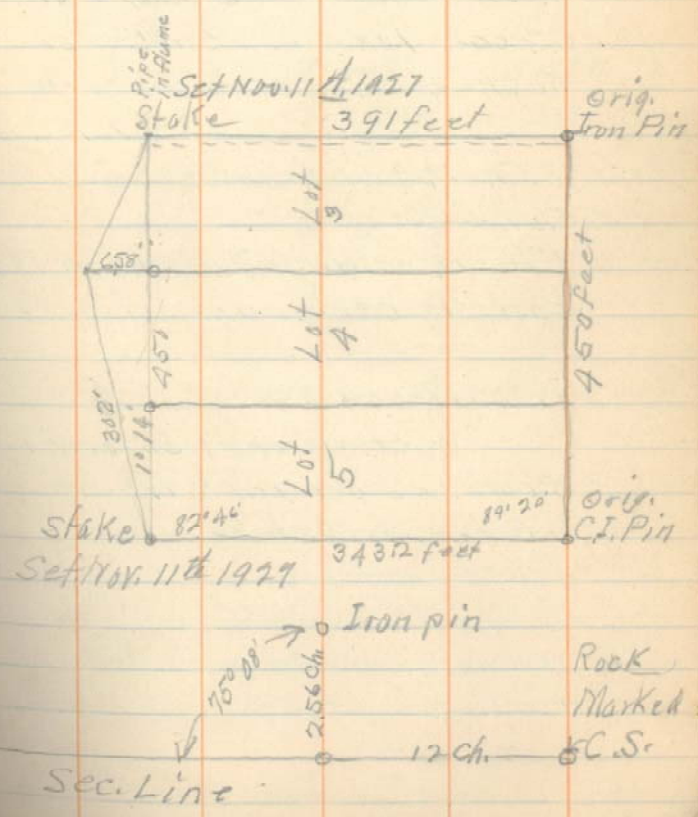 Pipe
in flume
Set Nov. 11th, 1927
Stake
391 feet
Orig.
Iron Pin
Lot
3
658'
Lot
4
451
450 feet
302'
1° 14'
Lot
5
82° 46'
89° 20'
Stake
Orig.
C.I. Pin
3432 feet
Set Nov. 11th 1927
Iron pin
75° 08'
2.56 Ch.
Rock
Marked
C.S.
12 Ch.
Sec. Line